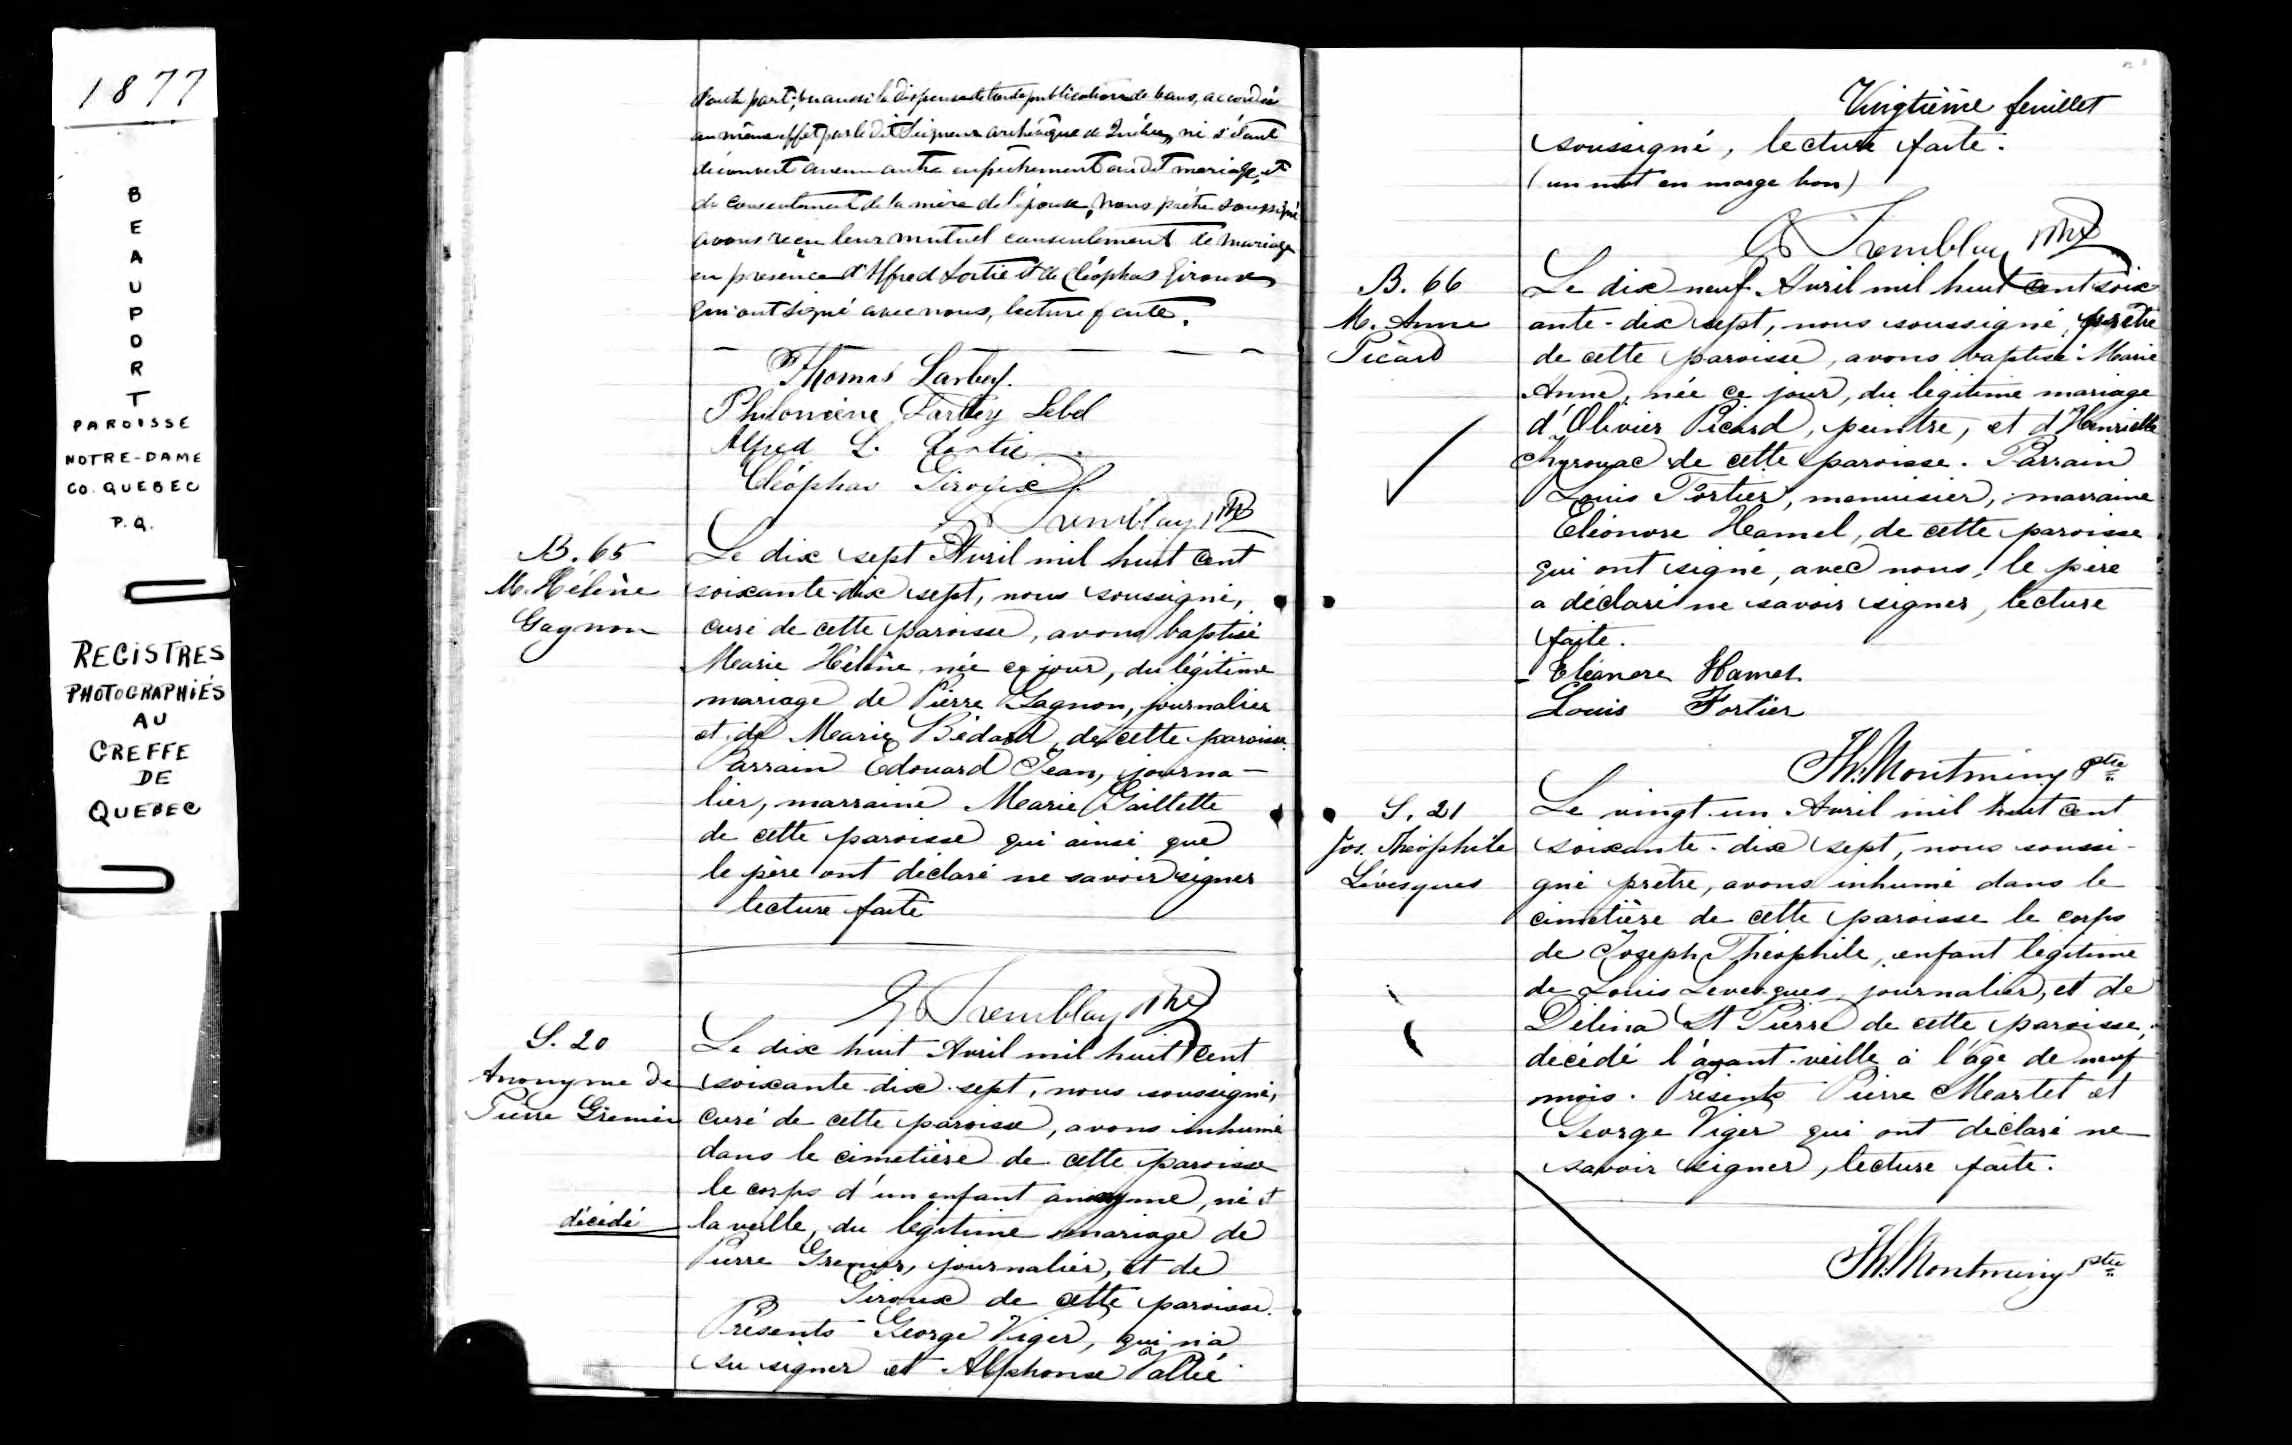 1877
BEAUPORT
PAROISSE
NOTRE-DAME
CO. QUEBEC
P.Q.
REGISTRES
PHOTOGRAPHIÉS
AU
GREFFE
DE
QUEBEC
d'autre part; vu aussi la dispense de publication de bans, accordée
au même effet par le dit Seigneur archevêque de Québec, ni s'étant
découvert aucun autre empêchement au dit mariage, et
du consentement de la mère de l'épouse, nous prêtre soussigné
avons reçu leur mutuel consentement de mariage
en présence d'Alfred Lortie et de Cléophas Giroux
qui ont signé avec nous, lecture faite.
Thomas Larbey.
Philomène Larbey Lebel
Alfred L. Lortie
Cléophas Giroux
Tremblay Ptre
B. 65
M. Hélène
Gagnon
Le dix sept Avril mil huit cent
soixante-dix sept, nous soussigné,
curé de cette paroisse, avons baptisé
Marie Hélène, née ce jour, du légitime
mariage de Pierre Gagnon, journalier
et de Marie Bédard, de cette paroisse.
Parrain Edouard Jean, journa-
lier, marraine Marie
de cette paroisse qui ainsi que
le père ont déclaré ne savoir signer
lecture faite
G Tremblay Ptre
S. 20
Anonyme de
Pierre Grenier
décédé
Le dix huit Avril mil huit cent
soixante dix-sept, nous soussigné,
curé de cette paroisse, avons inhumé
dans le cimetière de cette paroisse
le corps d'un enfant anonyme, né et
la veille, du légitime mariage de
Pierre Grenier, journalier, et de
Giroux de cette paroisse.
Présents George Viger, qui n'a
su signer et Alphonse Vallée
Vingtième feuillet
soussigné, lecture faite.
(un mot en marge bon)
G Tremblay Ptre
B. 66
M. Anne
Picard
Le dix neuf Avril mil huit cent soix
ante-dix sept, nous soussigné, prêtre
de cette paroisse, avons baptisé Marie
Anne, née ce jour, du légitime mariage
d'Olivier Picard, peintre, et d'Henriette
Chyrouac de cette paroisse. Parrain
Louis Fortier, menuisier, marraine
Eléonore Hamel, de cette paroisse
qui ont signé, avec nous, le père
a déclaré ne savoir signer, lecture
faite.
Eléanore Hamel
Louis Fortier
Th. Montminy Ptre
S. 21
Jos. Théophile
Lévesques
Le vingt-un Avril mil huit cent
soixante-dix sept, nous soussi-
gné prêtre, avons inhumé dans le
cimetière de cette paroisse le corps
de Joseph Théophile, enfant légitime
de Louis Levesques, journalier, et de
Délina St Pierre de cette paroisse,
décédé l'avant-veille à l'âge de neuf
mois. Présents Pierre Martel et
George Viger qui ont déclaré ne
savoir signer, lecture faite.
Th. Montminy Ptre